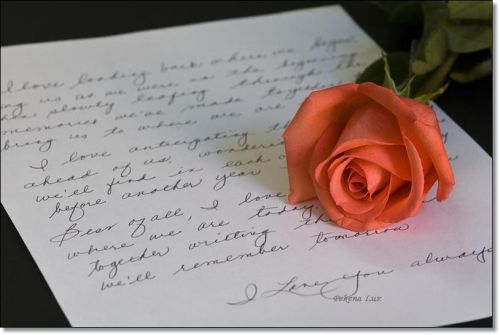 I love looking back where we began
us as we were in the beginning
slowly leafing through the
memories we've made together
bring us to where we are
I love anticipating
ahead of us, wondering
we'll find in each
before another year
Best of all, I love
where we are today
together writing the
we'll remember tomorrow.
I Love You always
Pukěna Luz